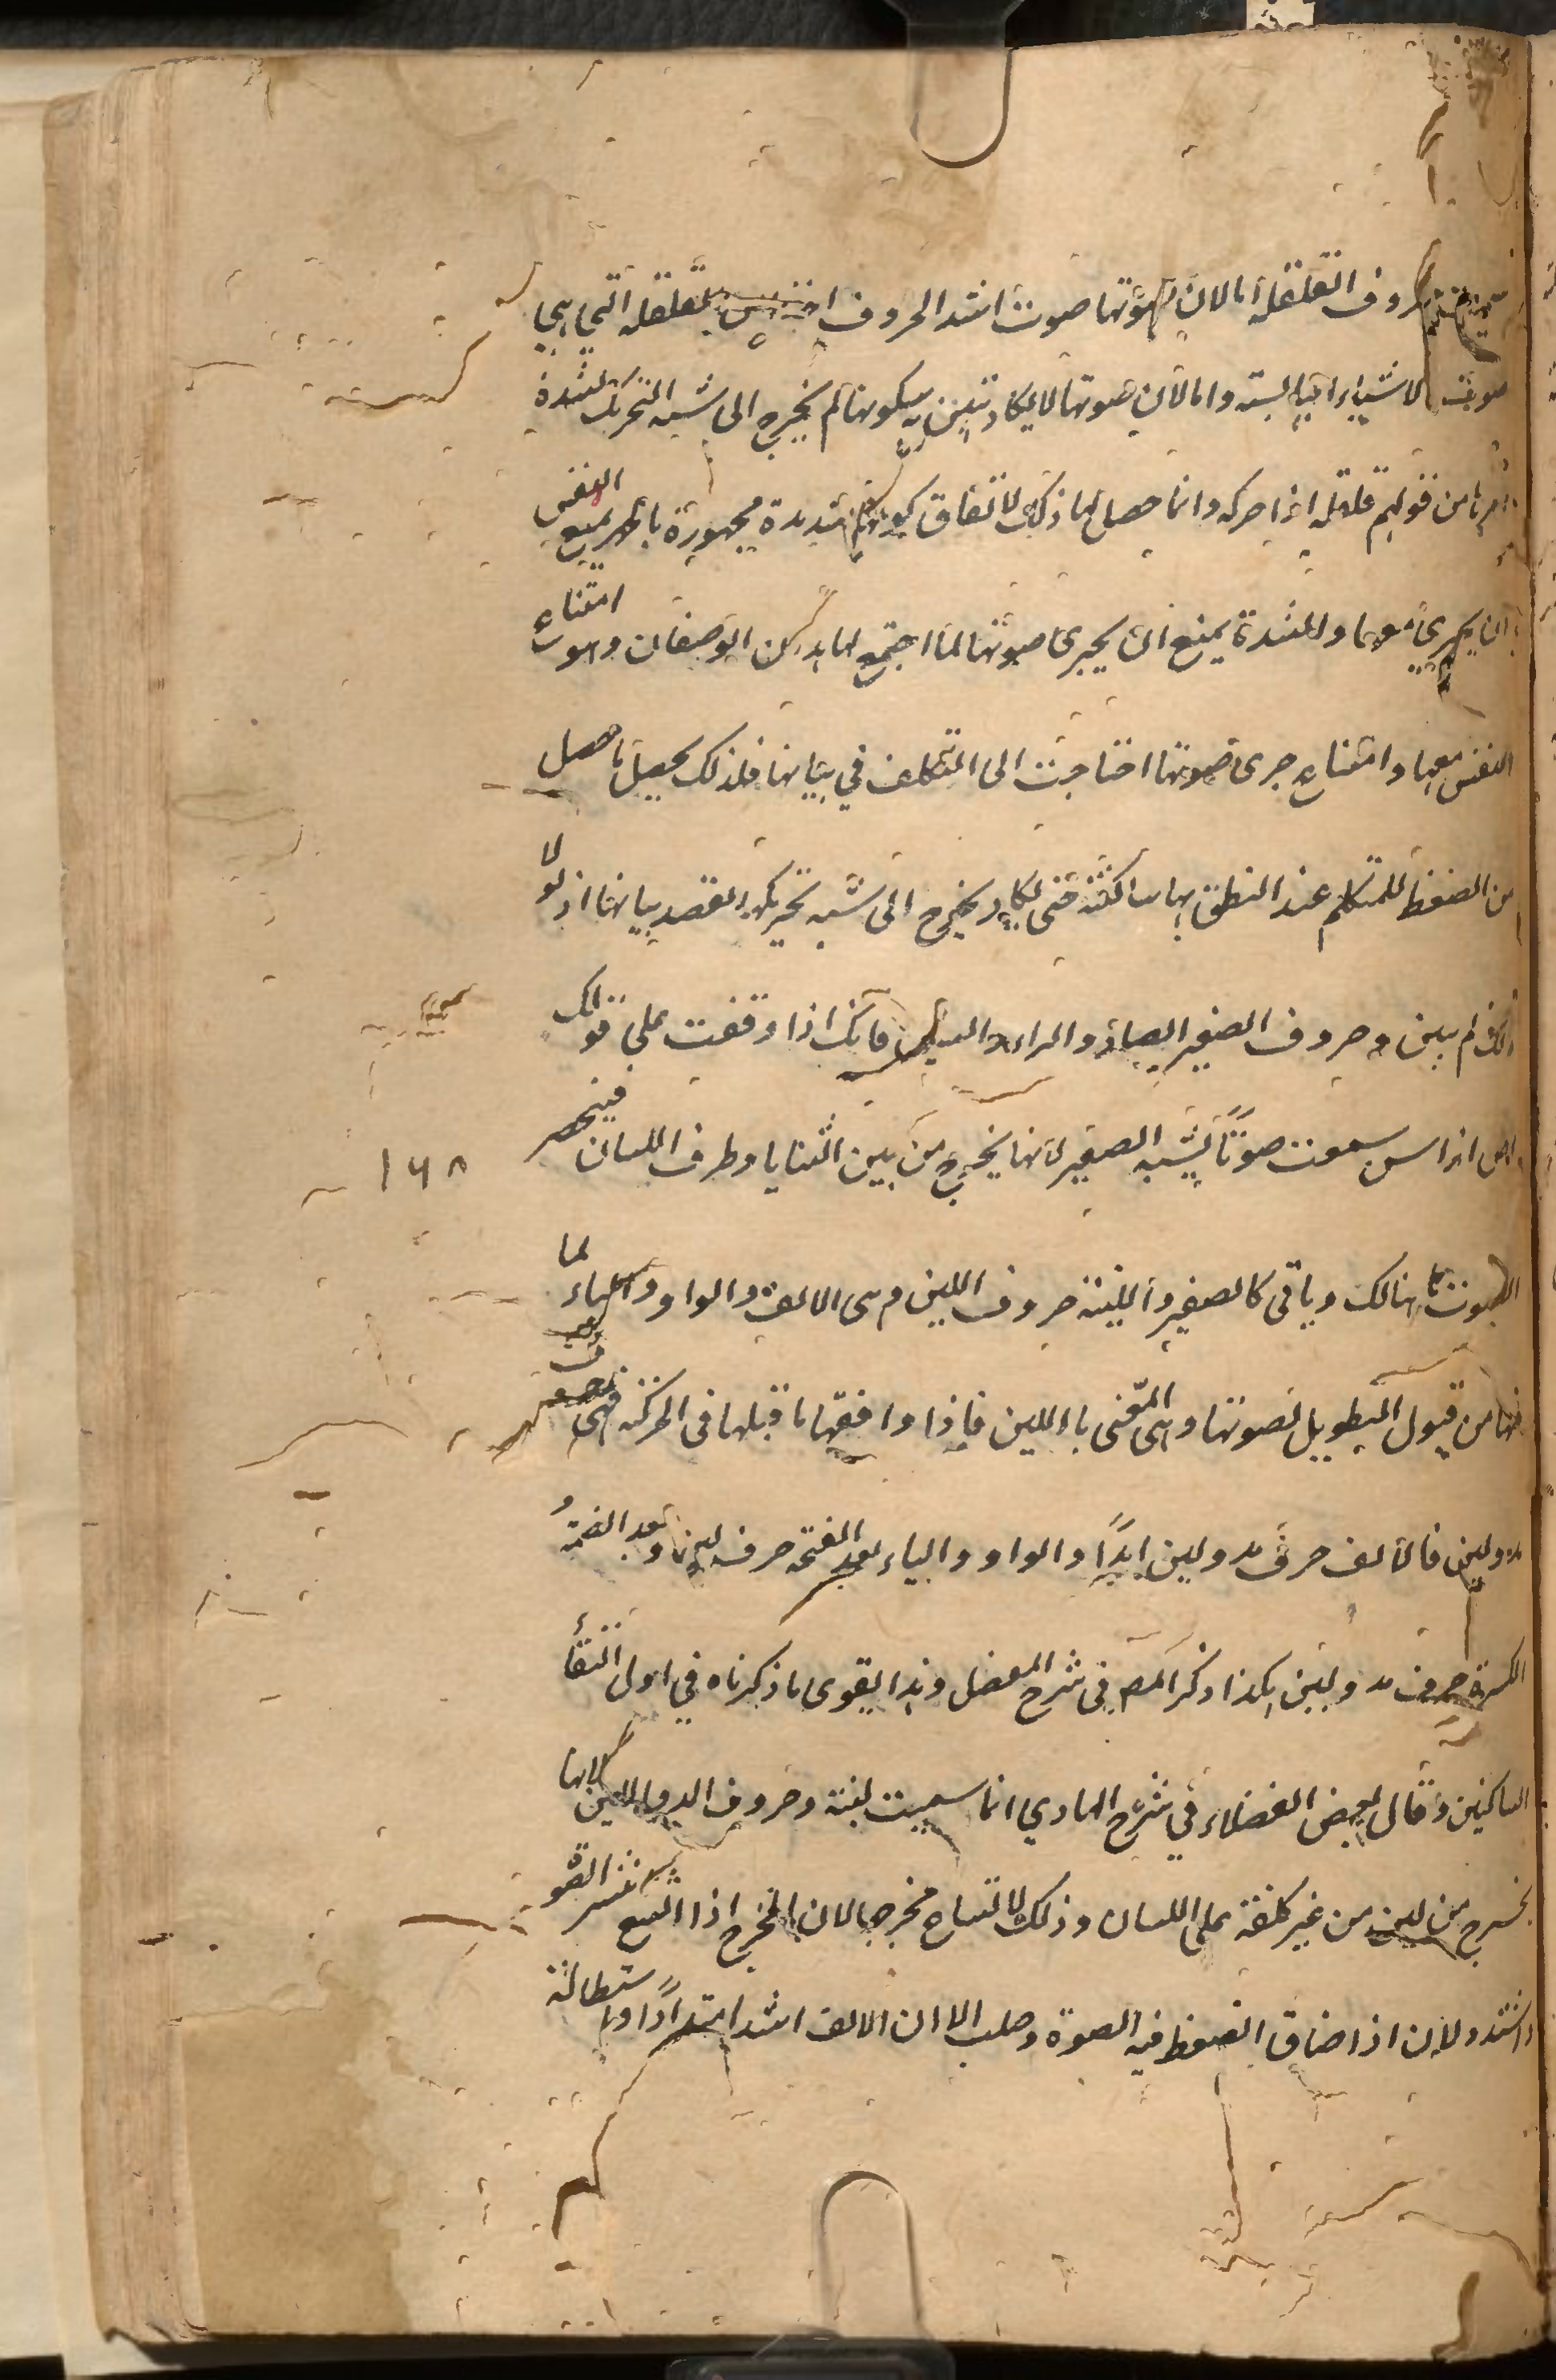 حروف القلقلة اما لان صوتها صوت اشد الحروف اخذا من القلقلة التي هي
صوت الاشياء اليابسة واما لان صوتها لا يكاد تتبين به سكونها لم يخرج الى شبه التحريك لشدة
امرها من قولهم قلقله اذا حركه وانما حصل لها ذلك لاتفاق كونها شديدة مجهورة بالجهر يمنع النفس
ان يجرى معها والشدة يمنع ان يجرى صوتها لما اجتمع لها هذان الوصفان وهو امتناع
النفس معها وامتناع جرى صوتها احتاجت الى التكلف في بيانها فلذلك يحصل ما حصل
من الضغط للمتكلم عند النطق بها ساكنة حتى يكاد يخرج الى شبه تحريكها لقصد بيانها اذ لولا
ذلك لم يبين وحروف الصفير الصاد والزاء والسين فانك اذا وقفت على قولك
اص از اس سمعت صوتًا يشبه الصفير لانها يخرج من بين الثنايا وطرف اللسان فينحصر
١٦٨
الصوت هنالك وياتى كالصفير واللينة حروف اللين وهى الالف والواو والياء لما
فيها من قبول التطويل لصوتها وهى المعنى باللين فاذا وافقها ما قبلها فى الحركة فهى حروف
مد ولين فالالف حرف مد ولين ابدًا والواو والياء بعد الفتحة حرف لين وبعد الضمة و
الكسرة حرف مد ولين هكذا ذكر المص فى شرح المفصل وهذا يقوى ما ذكرناه في اول التقاء
الساكنين وقال بعض الفضلاء في شرح الهادي انما سميت لينة وحروف المد واللين لانها
يخرج من لين من غير كلفة على اللسان وذلك لاتساع مخرجها لان المخرج اذا اتسع انتشر الصوت
وامتد ولان اذا ضاق انضغط فيه الصوة وصلب الا ان الالف اشد امتدادًا واستطالة